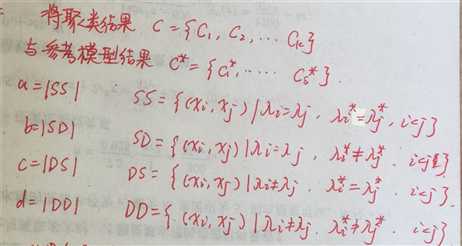 将聚类结果 C={C₁, C₂, ⋯ Cₖ}
与参考模型结果 C*={C₁*, ⋯⋯ Cₛ*}.
a=|SS| SS={(xᵢ, xⱼ)|λᵢ=λⱼ, λᵢ*=λⱼ*, i<j}
b=|SD| SD={(xᵢ, xⱼ)|λᵢ=λⱼ, λᵢ*≠λⱼ*, i<j}
c=|DS| DS={(xᵢ, xⱼ)|λᵢ≠λⱼ, λᵢ*=λⱼ*, i<j}.
d=|DD| DD={(xᵢ, xⱼ)|λᵢ≠λⱼ, λᵢ*≠λⱼ*, i<j}